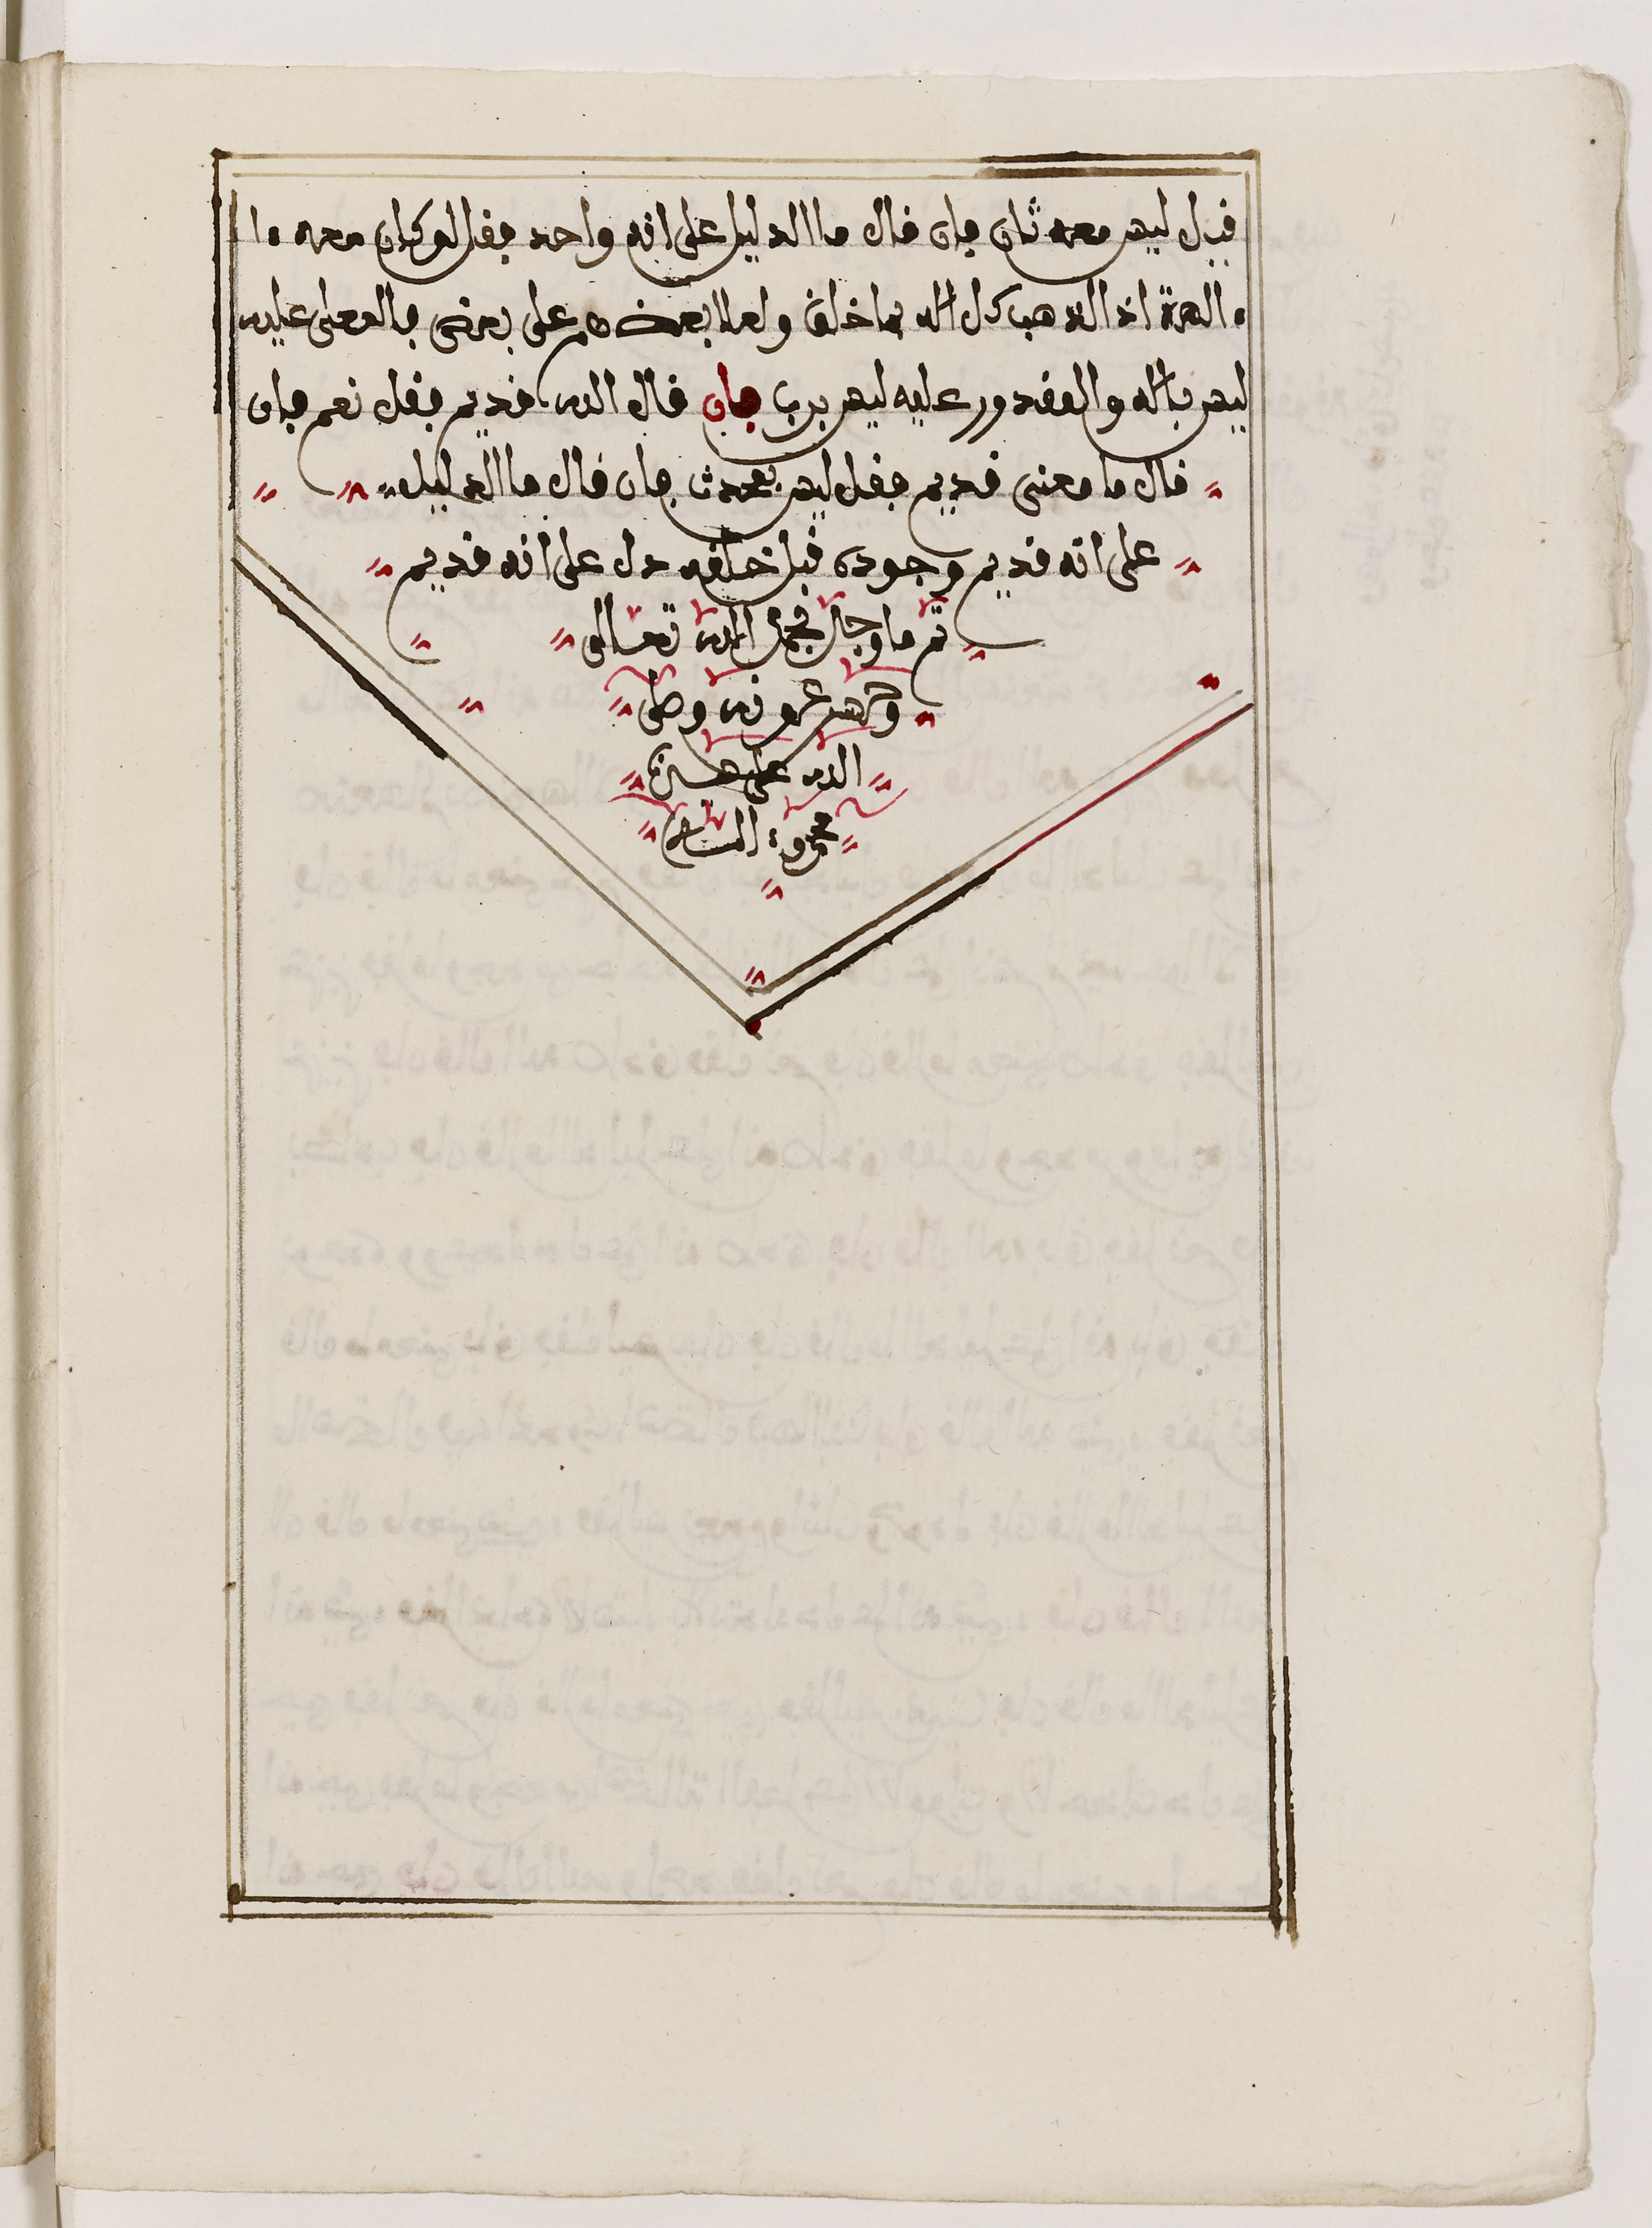 فيل ليس معه ثان فإن قال ما الدليل على انه واحد فقل لو كان معه ا
الهة اذا لذهب كل اله بما خلق ولعلا بعضهم على بعض فالمعلى عليه
ليس باله والمقدور عليه ليس برب فإن قال الله قديم فقل نعم فإن
قال ما معنى قديم فقل ليس بمحدث فإن قال ما الدليل
على انه قديم وجوده قبل خلقه دل على انه قديم
تم ما وجد بحمد الله تعالى
وحسن عونه وصلى
الله على سيدنا
محمد السلام